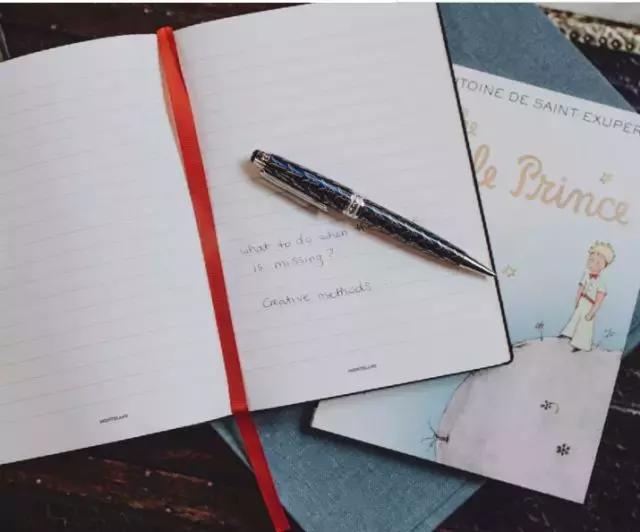 what to do when
is missing?
Creative methods
MONTBLANC
MONTBLANC
TOINE DE SAINT-EXUPÉR
le Prince